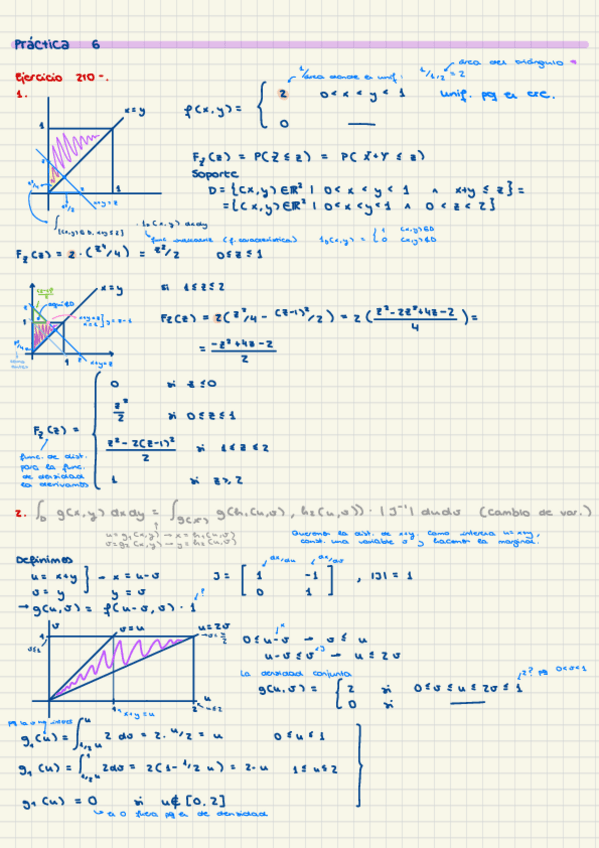 Práctica 6
Ejercicio 210-.
1.
1/área donde es unif.
área del triángulo
1/1/2 = 2
f(x,y) = { 2 0<x<y<1 unif. pq es cte.
0 ―
x=y
1
1
x+y=z
F_Z(z) = P(Z ≤ z) = P(X+Y ≤ z)
Soporte
D = {(x,y)∈ℝ² | 0<x<y<1 ∧ x+y ≤ z} =
= {(x,y)∈ℝ² | 0<x<y<1 ∧ 0<z<2}
∫{(x,y)∈D, x+y≤z} · 1_D(x,y) dxdy
func. indicadora (f. característica) 1_D(x,y) = { 1 (x,y)∈D
0 (x,y)∉D
F_Z(z) = 2·(z²/4) = z²/2 0≤z≤1
x=y
x+y=z
1
si 1≤z≤2
F_Z(z) = 2(z²/4 - (z-1)²/2) = 2((z²-2z²+4z-2)/4) =
= (-z²+4z-2)/2
F_Z(z) = { 0 si z≤0
z²/2 si 0≤z≤1
(z²-2(z-1)²)/2 si 1≤z≤2
1 si z≥2
func. de dist.
para la func.
de densidad
la derivamos
2. ∫_D g(x,y) dxdy = ∫_g(x,y) g(h₁(u,v), h₂(u,v)) · |J⁻¹| dudv (cambio de var.)
u = g₁(x,y) → x = h₁(u,v)
v = g₂(x,y) → y = h₂(u,v)
Queremos la dist. de x+y. Como interesa u=x+y,
const. una variable v y hacemos la marginal.
Definimos
u = x+y } → x = u-v
v = y y = v
J = [ 1 -1
0 1 ], |J| = 1
dx/du dx/dv
→ g(u,v) = f(u-v, v) · 1
v
v=u
u=2v
→ v=u/2
1
v≤1
u
1
x+y=u
2
0 ≤ u-v → v ≤ u
u-v ≤ v → u ≤ 2v
La densidad conjunta
g(u,v) = { 2 si 0≤v≤u≤2v≤1
0 si ―
2? pq 0<v<1
g₁(u) = ∫_{1/2 u}^{u} 2 dv = 2·u/2 = u 0≤u≤1
g₁(u) = ∫_{1/2 u}^{1} 2dv = 2(1-1/2 u) = 2-u 1≤u≤2
g₁(u) = 0 si u∉[0,2]
↳ a 0 fuera pq es de densidad